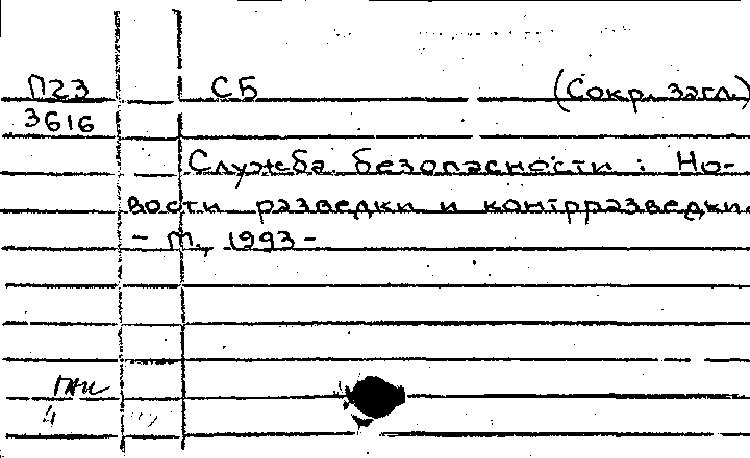 П23 СБ (Сокр. загл.)
3616
Служба безопасности : Но-
вости разведки и контрразведки.
- М., 1993-
4